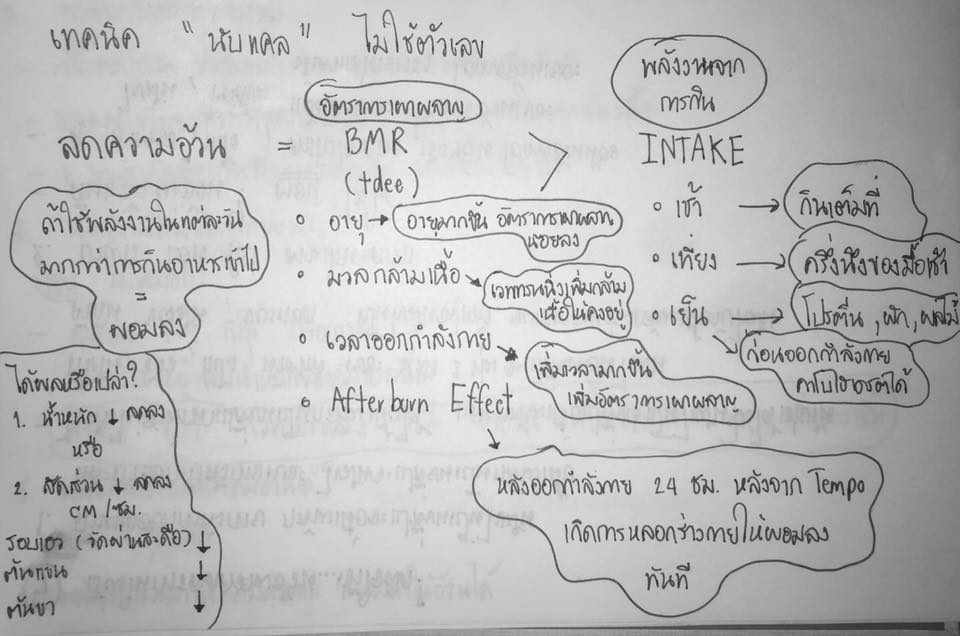 เทคนิค "นับแคล" ไม่ใช้ตัวเลข
พลังงานจาก
การกิน
อัตราการเผาผลาญ
ลดความอ้วน = BMR
(tdee)
INTAKE
ถ้าใช้พลังงานในแต่ละวัน
มากกว่าการกินอาหารเข้าไป
=
ผอมลง
• อายุ → อายุมากขึ้น อัตราการเผาผลาญ
น้อยลง
• มวลกล้ามเนื้อ
เวทเทรนนิ่งเพิ่มกล้าม
เนื้อให้คงอยู่
• เวลาออกกำลังกาย
เพิ่มเวลามากขึ้น
เพิ่มอัตราการเผาผลาญ
• After burn Effect
หลังออกกำลังกาย 24 ชม. หลังจาก Tempo
เกิดการหลอกร่างกายให้ผอมลง
ทันที
• เช้า → กินเต็มที่
• เที่ยง → ครึ่งหนึ่งของมื้อเช้า
• เย็น → โปรตีน, ผัก, ผลไม้
ก่อนออกกำลังกาย
คาโบไฮเดรตได้
ได้ผลหรือเปล่า?
1. น้ำหนัก ↓ ลดลง
หรือ
2. สัดส่วน ↓ ลดลง
CM/ซม.
รอบเอว (วัดผ่านสะดือ) ↓
ต้นแขน ↓
ต้นขา ↓